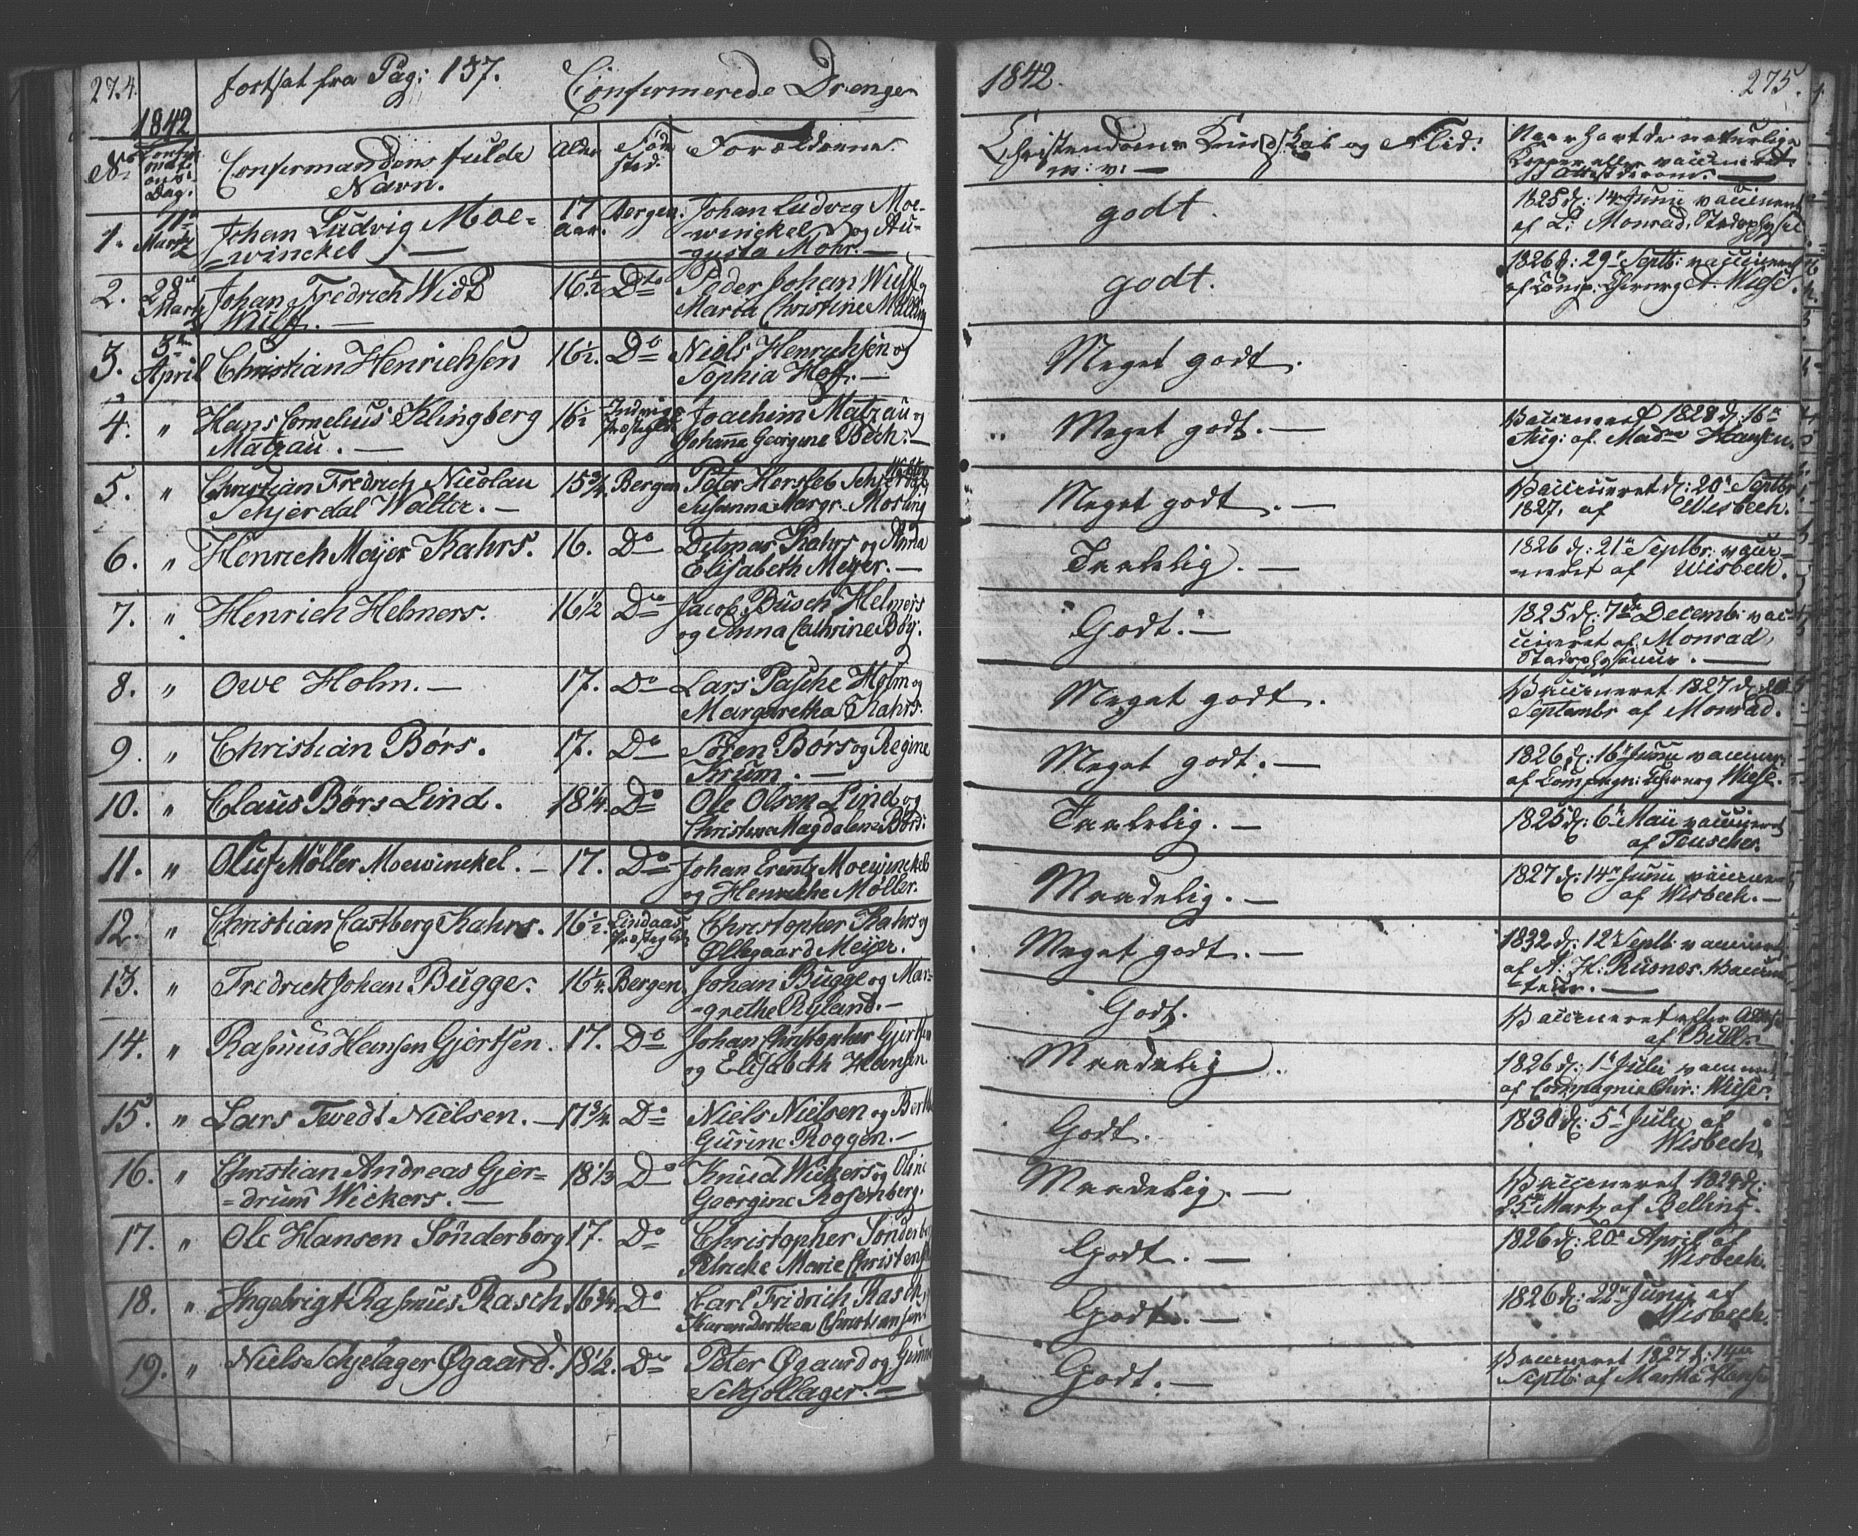 274. fortsat fra Pag: 137. Confirmerede Drenge
1842
No. Confirmations Dag. Confirmandens fulde Navn. Alder Føde Sted. Forældrene.
1. 11te Martz Johan Ludvig Moe- 17 Aar. Bergen. Johan Ludvig Moe-
-winckel — -winckel og Au-
-gusta Mohr. —
2. 28de Martz Johan Fredrich Widt 16½ Dto Peder Johan Wulff og
Wulff. — Maria Christine Malling
3. 3die April Christian Henrichsen 16½. Do Niels Henrichsen og
Sophia Hoff. —
4. " Hans Cornelius Klingberg 16½ Præstegield Joachim Matzau og
Matzau. — Johanna Georgine Bech. —
5. " Christian Fredrich Nicolau 15¾ Bergen Peter Hersleb
Schjerdal Walter. — Susanna Margr. Mosling
6. " Henrich Meijer Kahrs. 16. Do Ditmar Kahrs og Anna
Elisabeth Meyer. —
7. " Henrich Helmers. 16½ Do Jacob Busch Helmers
og Anna Cathrine Bøy.
8. " Owe Holm. — 17. Do Lars Pasche Holm og
Margaretha Kahrs.
9. " Christian Børs. 17. Do Søren Børs og Regine
Krum. —
10. " Claus Børs Lind. 18¼. Do Ole Olsen Lind og
Christina Magdalena Børs.
11. " Oluf Møller Moewinckel. — 17. Do Johan Erentz Moewinckel
og Henriche Møller.
12. " Christian Castberg Kahrs. 16½. Lindaas Præstegield Christopher Kahrs og
Øllegaard Meijer.
13. " Fredrich Johan Bugge. 16¼. Bergen Johan Bugge og Mar-
-grethe Ryland. —
14. " Rasmus Hansen Gjertsen. 17. Do Johan Christopher Gjertsen
og Elisabeth Hansen
15. " Lars Tvedt Nielsen. — 17¾ Do Niels Nielsen og
Gurine Roggen. —
16. " Christian Andreas Gjer- 18⅓ Do Knud Wickers og Oline
-drum Wickers. — Georgine Rosenberg.
17. " Ole Hansen Sønderborg 17. Do Christopher Sønderborg
Marie
18. " Ingebrigt Rasmus Rasch 16¾ Do Carl Fridrich Rasch
Karen Dorthea Christiansen
19. " Niels Schjelager Øgaard. 18½. Do Peter Øgaard og
Schjøllager. —
1842. 275.
Christendoms Kundskab og Flid.
m: v: —
Naar havt de naturlige
Kopper eller vaccineret
—
godt. 1825 d: 14 Junii vaccineret
af L: Monrad, Stadsphysici
godt. 1826 d: 29 Septb: vaccineret
af Comp: Chirurg A. Wiese.
Meget godt.
Meget godt. — Vaccineret 1828 d: 16de
Aug: af Madme Hansen.
Meget godt. — Vaccineret d: 20de Septbr
1827. af Wisbech.
Taalelig. — 1826 d: 21de Septbr: vacci-
-neret af Wisbech.
Godt. — 1825 d: 7de Decemb: vac-
cineret af Monrad
Stadsphysicus. —
Meget godt. Vaccineret 1827 d:
Septembr af Monrad.
Meget godt. — 1826 d: 16de Junii vacciner:
af Compagn: Chirurg Wiese.
Taalelig. — 1825 d: 6te Maii vaccineret
af Teuscher.
Maadelig. — 1827 d: 14de Junii vaccineret
af Wisbech. —
Meget godt. — 1832 d: 12te Septb: vaccineret
af A: H: Risnæs
—
Godt. Vaccineret efter Attest
af
Maadelig. 1826 d: 1ste Julii vaccineret
af Compagnie Chir: Wiese.
Godt. 1830 d: 5te Julii af
Wisbech.
Maadelig. — Vaccineret
25de Martz af Belling.
Godt. — 1826 d: 20de April af
Wisbech.
Godt. — 1826 d: 22de Junii af
Wisbech.
Godt. — Vaccineret 1827 d: 14de
Septb: af Martha